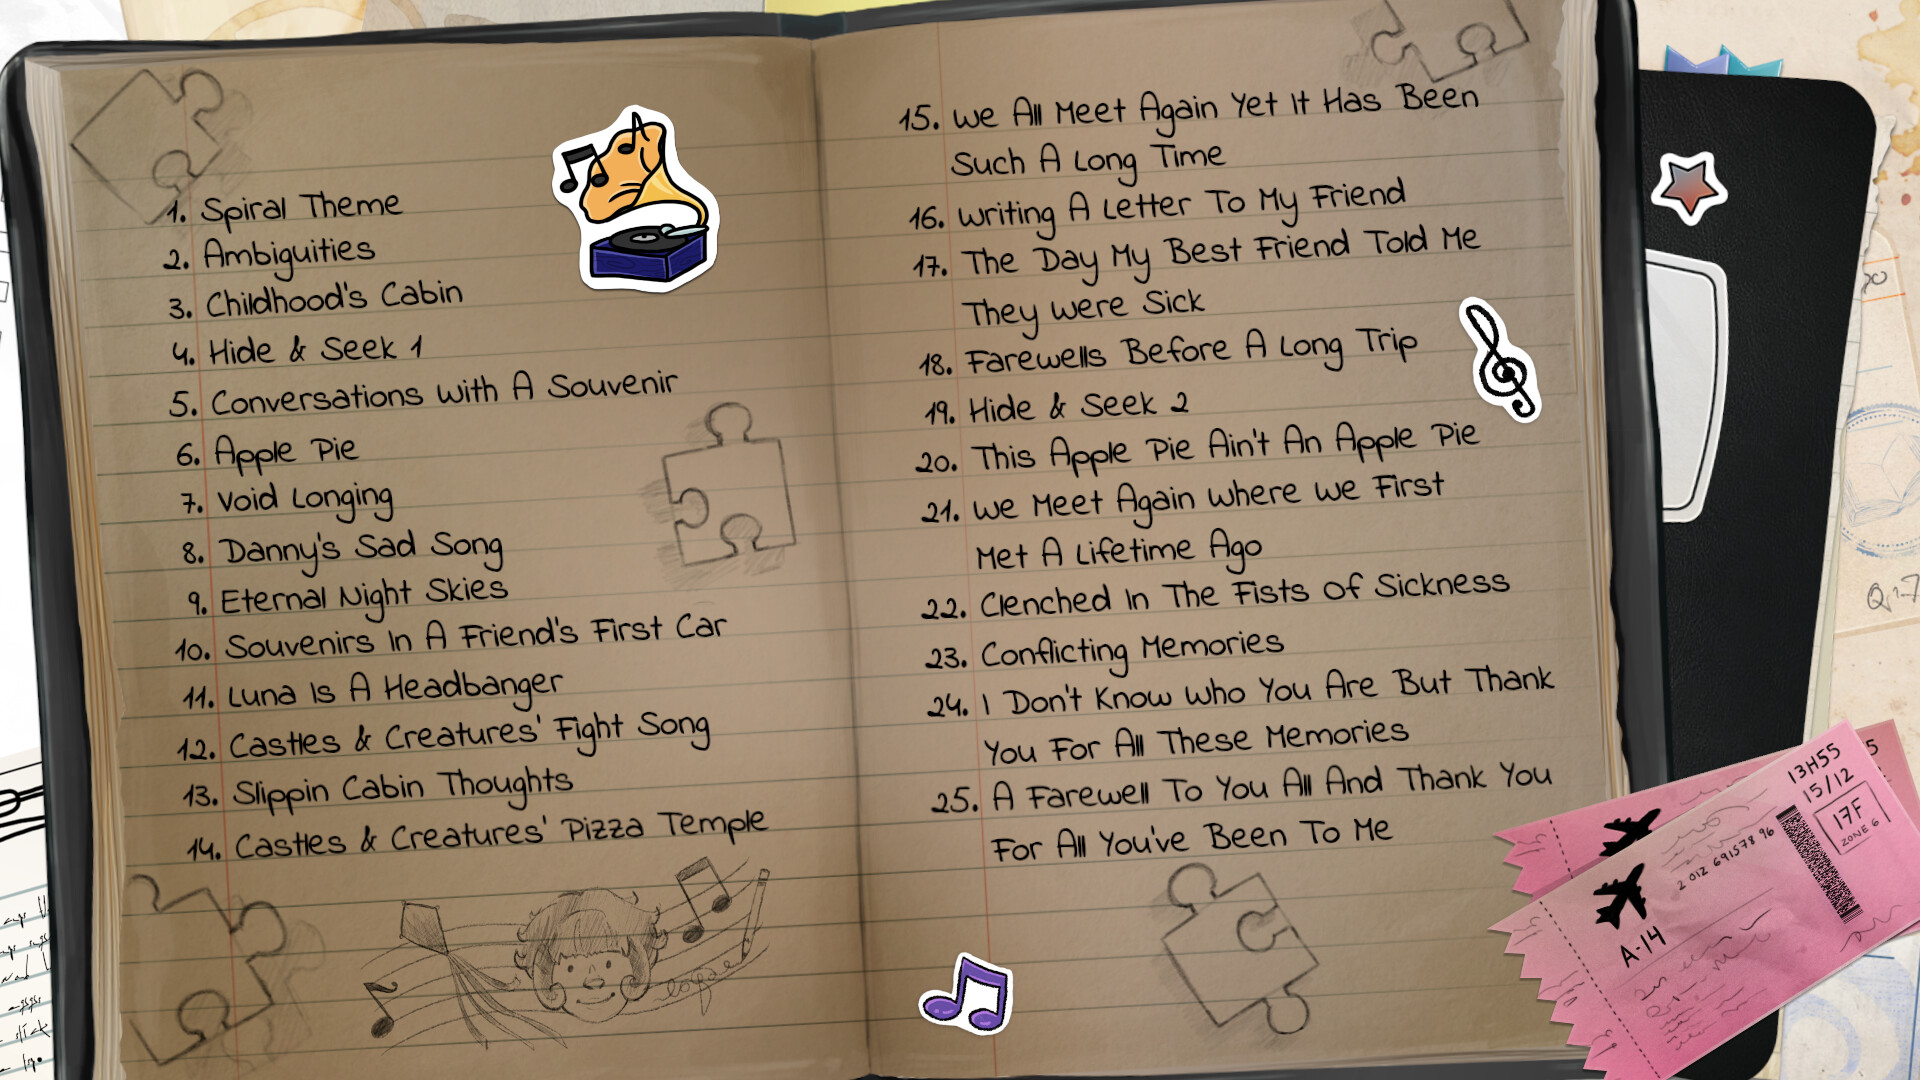 1. Spiral Theme
2. Ambiguities
3. Childhood's Cabin
4. Hide & Seek 1
5. Conversations With A Souvenir
6. Apple Pie
7. Void Longing
8. Danny's Sad Song
9. Eternal Night Skies
10. Souvenirs In A Friend's First Car
11. Luna Is A Headbanger
12. Castles & Creatures' Fight Song
13. Slippin Cabin Thoughts
14. Castles & Creatures' Pizza Temple
15. We All Meet Again Yet It Has Been
Such A Long Time
16. Writing A Letter To My Friend
17. The Day My Best Friend Told Me
They Were Sick
18. Farewells Before A Long Trip
19. Hide & Seek 2
20. This Apple Pie Ain't An Apple Pie
21. We Meet Again Where We First
Met A Lifetime Ago
22. Clenched In The Fists Of Sickness
23. Conflicting Memories
24. I Don't Know Who You Are But Thank
You For All These Memories
25. A Farewell To You All And Thank You
For All You've Been To Me
13H55
15/12
17F
ZONE 6
2 012 691578 96
A-14